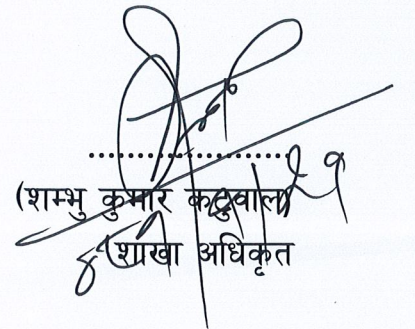 ....................................
(शम्भु कुमार कटुवाल)
शाखा अधिकृत